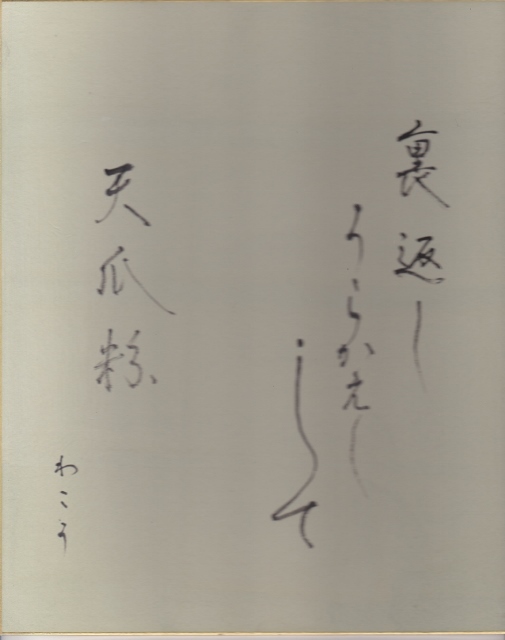 裏返し
うらがえし
して
天瓜粉
わこう